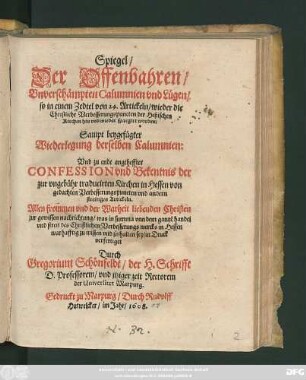 Spiegel/
Der Offenbahren/
Vnverschämpten Calumnien vnd Lügen/
so in einem Zedtel von 24. Artickeln/ wieder die
Christliche Verbesserungspuncten der Hessischen
Kirchen hin vnd wider spargirt worden:
Sampt beygefügter
Wiederlegung derselben Calumnien:
Vnd zu ende angehefter
CONFESSION vnd Bekentnis der
zur vngebühr traducirten Kirchen in Hessen von
gedachten Verbesserungspuncten vnd andern
streitigen Artickeln.
Allen frommen vnd der Warheit liebenden Christen
zur gewissen nachrichtung/ was in summa von dem gantzen handel
vnd streit des Christlichen Verbesserungs wercks in Hessen
warhafftig zu wissen vnd zuhalten sey in Druck
verfertiget
Durch
Gregorium Schönfeldt/ der H. Schrifft
D. Professorem/ vnd jtziger zeit Rectorem
der Vniversitet Marpurg.
Gedruckt zu Marpurg/ Durch Rudolff
Hutwelcker/ im Jahr/ 1608.